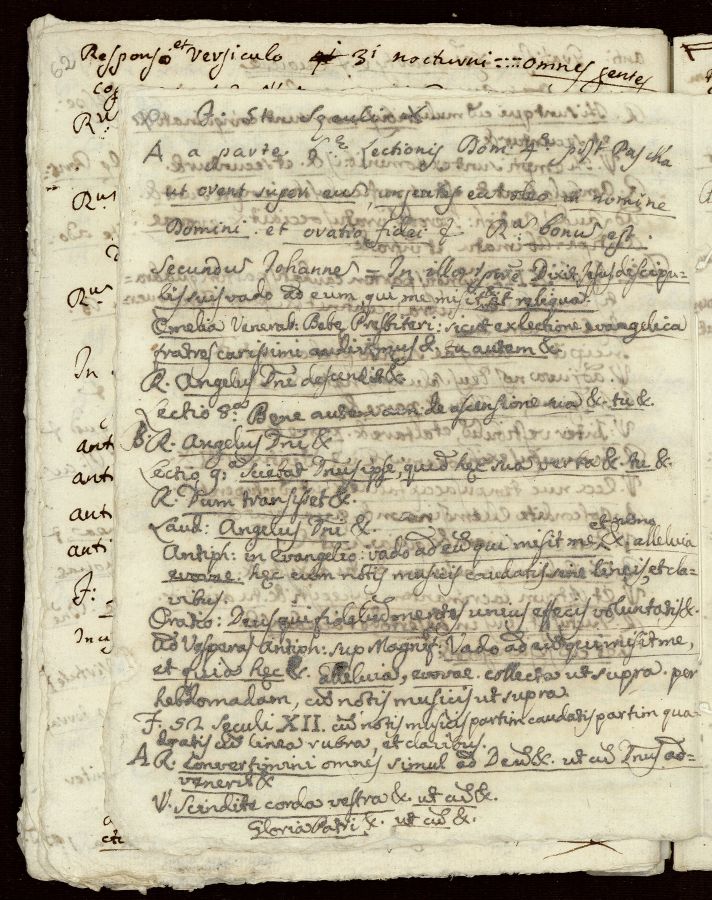 Responso et Versiculo 3i nocturni :::: omnes gentes
F. 51. Seculi X
A a parte. Lectionis Dom. 4æ post Pascha
ut orent super eum, ungentes eum oleo in nomine
Domini. et oratio fidei & Ra bonus est.
Secundus Iohannes = In illo tempore Dixit Jesus discipu=
lis suis vado ad eum, qui me misit, et reliqua.
Omelia Venerab: Bede Presbiteri: sicut ex lectione evangelica
fratres carissimi audivimus &. tu autem &.
R. Angelus Dni descendit &.
Lectio 8.a Bene autem cum de ascensione sua &. tu &.
B. R. Angelus Dni &
Lectio 9.a Sciebat Dnus ipse, quid hęc sua verba &. tu &.
R. Dum transisset &.
Laud: Angelus Dni &.
et nemo
Antiph: in Evangelio: vado ad eū qui misit me &. alleluia
evovae: hęc cum notis musicis caudatis sine lineis, et cla=
vibus.
Oratio: Deus qui fidelium mentes unius efficis voluntatis &.
Ad Vesperas Antiph: sup Magnif: Vado ad eum qui misit me,
et quia hęc &. alleluia, evovae. collecta ut supra. per
hebdomadam, cū notis musicis ut supra.
F. 52. seculi XII. cū notis musicis partim caudatis partim qua=
dratis cū linea rubra, et clavibus.
A. R. Convertimini omnes simul ad Deū &. ut cū Dnus ad=
venerit &
V. Scindite corda vestra &. ut cū &.
Gloria Patri &. ut cū &.
Ru.
Rus
Ru.
In
ant
ant
ant
anti
F: